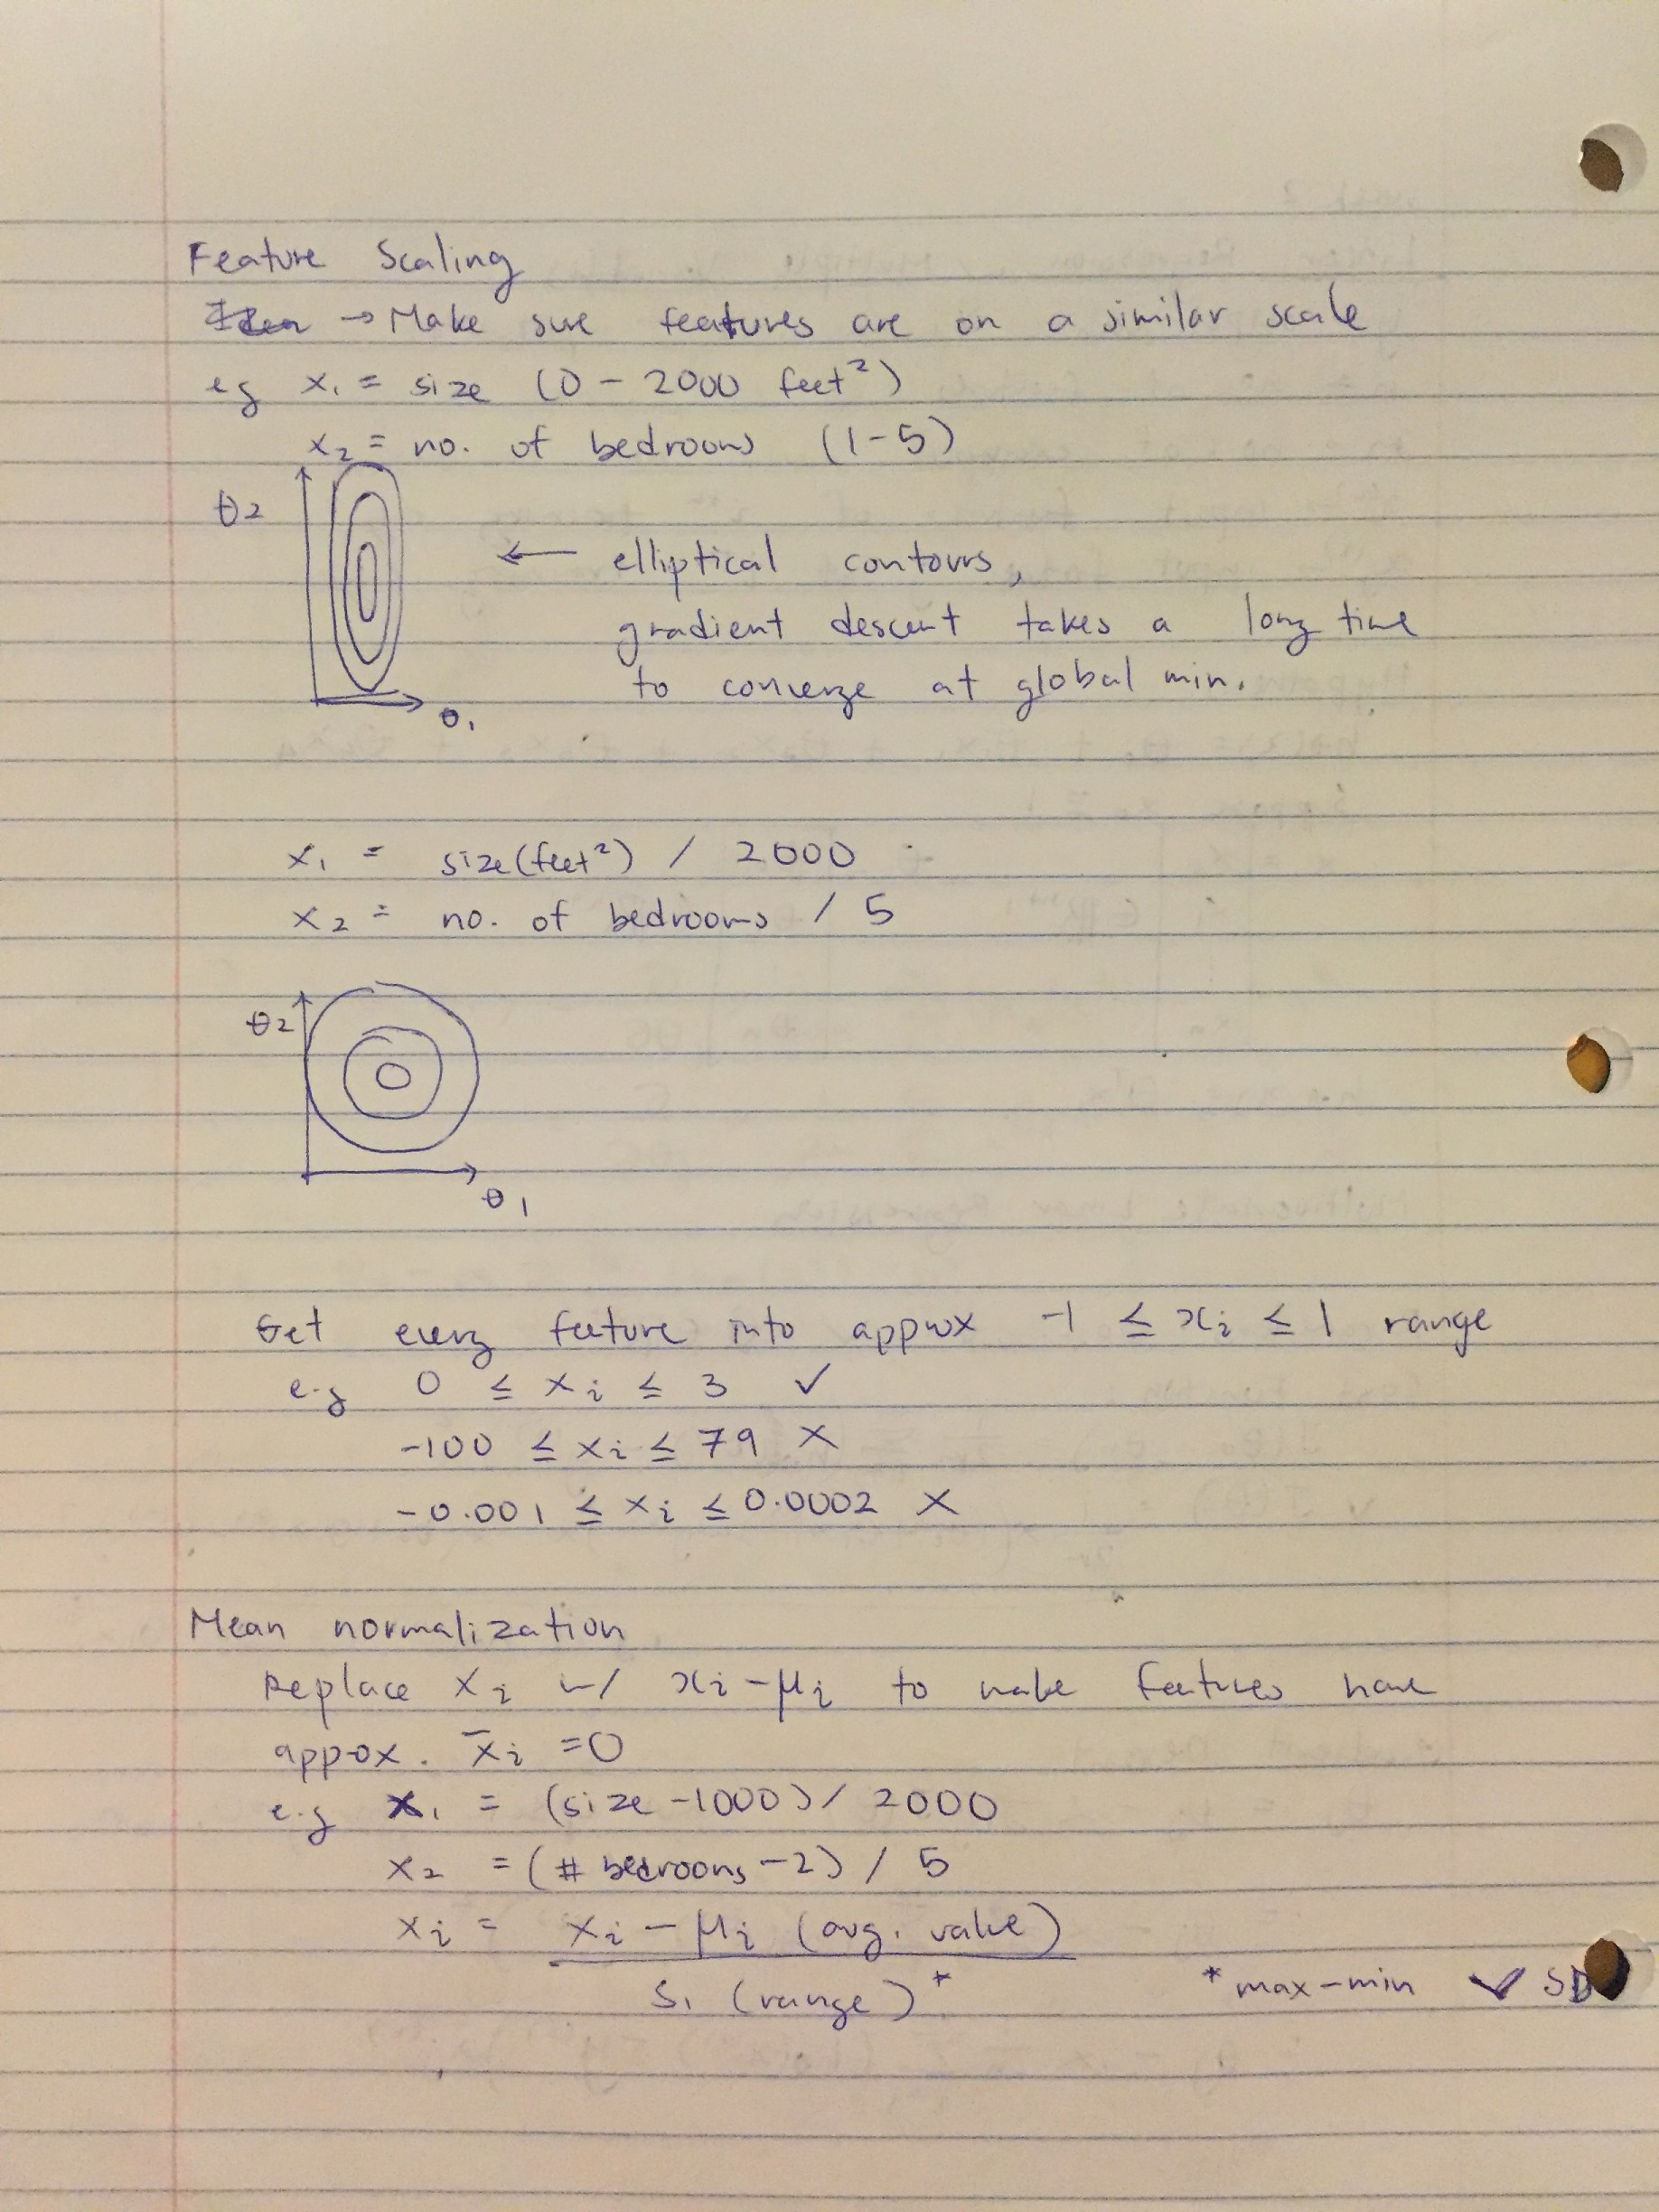 Feature Scaling
Idea → Make sure features are on a similar scale
eg x₁ = size (0 - 2000 feet²)
x₂ = no. of bedrooms (1-5)
θ2
← elliptical contours,
gradient descent takes a long time
to converge at global min.
θ₁
x₁ = size(feet²) / 2000
x₂ = no. of bedrooms / 5
θ2
θ1
Get every feature into approx -1 ≤ xᵢ ≤ 1 range
e.g 0 ≤ xᵢ ≤ 3 ✓
-100 ≤ xᵢ ≤ 79 X
-0.001 ≤ xᵢ ≤ 0.0002 X
Mean normalization
Replace xᵢ w/ xᵢ - μᵢ to make features have
appox. x̄ᵢ = 0
e.g x₁ = (size - 1000) / 2000
x₂ = (# bedrooms - 2) / 5
xᵢ = xᵢ - μᵢ (avg. value)
S₁ (range)* *max-min ✓ SD